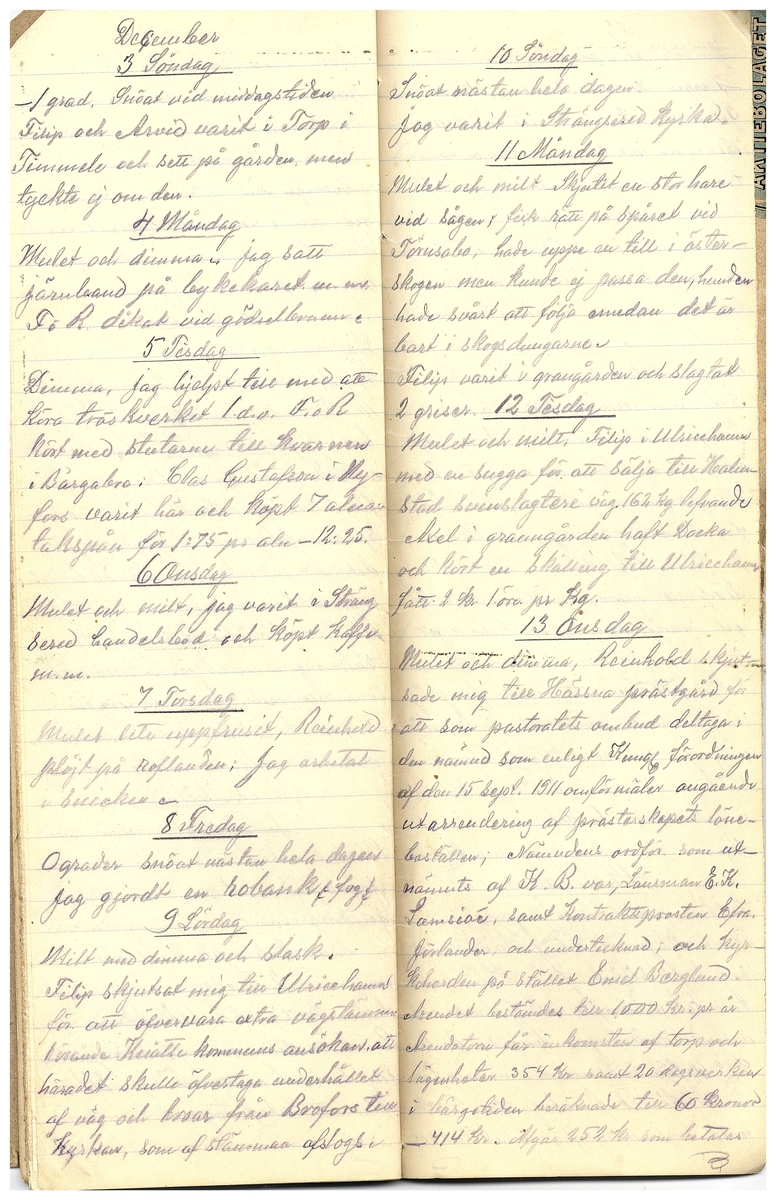 December
3 Söndag
-1 grad. Snöat vid middagstiden
Filip och Arvid varit i Torp i
Timmele och sett på gården, men
tyckte ej om den.
4 Måndag
Mulet och dimma, jag satt
järnband på bykekaret m. m.
F o R. dikat vid gödselbrunn
5 Tisdag
Dimma, jag hjelpt till med att
köra tröskverket 1 d.v. F. o R
kört med stutarne till kvarnen
i Bärgabro; Clas Gustafson i
fors varit här och köpt 7 alnar
takspån för 1:75 pr aln - 12:25.
6 Onsdag
Mulet och milt, jag varit i Sträng
sered handelsbod och köpt kaffe
m. m.
7 Torsdag
Mulet lite uppfrusit, Reinhold
plöjt på roflanden; Jag arbetat
i snickeri
8 Fredag
0 grader snöat nästan hela dagen
Jag gjordt en hobänk
9 Lördag
Milt med dimma och slask.
Filip skjutsat mig till Ulricehamn
för att öfvervara extra vägstämma
rörande kommuns ansökan, att
häradet skulle öfvertaga underhållet
af väg och broar från Brofors till
Kyrkan, som af stämman afslogs
10 Söndag
Snöat nästan hela dagen
jag varit i Strängsered Kyrka
11 Måndag
Mulet och milt Skjutet en stor hare
vid sågen, fick rätt på spåret vid
Törnsabo, hade uppe en till i öster-
skogen men kunde ej passa den, hunden
hade svårt att följa emedan det är
bart i skogsdungarne.
Filip varit i grangården och slagtat
2 griser. 12 Tesdag
Mulet och milt, Filip i Ulricehamn
med en sugga för att sälja till Halm-
stad svenslagteri väg. 162 kg lefvande
Axel i granngården haft Docka
och kört en skålling till Ulricehamn
fått 2 kr 1 öra pr kg.
13 Onsdag
Mulet och dimma, Reinhold skjut-
sade mig till Hässna prästgård för
att som pastoratets ombud deltaga i
den nämnd som enligt Kungl förordningen
af den 15 Sept. 1911 omförmäler angående
utarrendering af prästerskapets löne-
boställen; Nämndens ordför. som ut-
nämnts af K. B. var, Länsman E. K.
samt Kontraktsprosten Efra.
Jörlander, och undertecknad; och Kyr-
koherden på stället Emil Bærglund.
Arendet bestämdes till 1000 Kr. pr år
Arendatorn får inkomsten af torp och
lägenheter 354 Kr samt 20 dagsverken
i bärgstiden beräknade till 60 kronor
- 414 Kr. Afgår 252 Kr som betalas
AKTIEBOLAGET